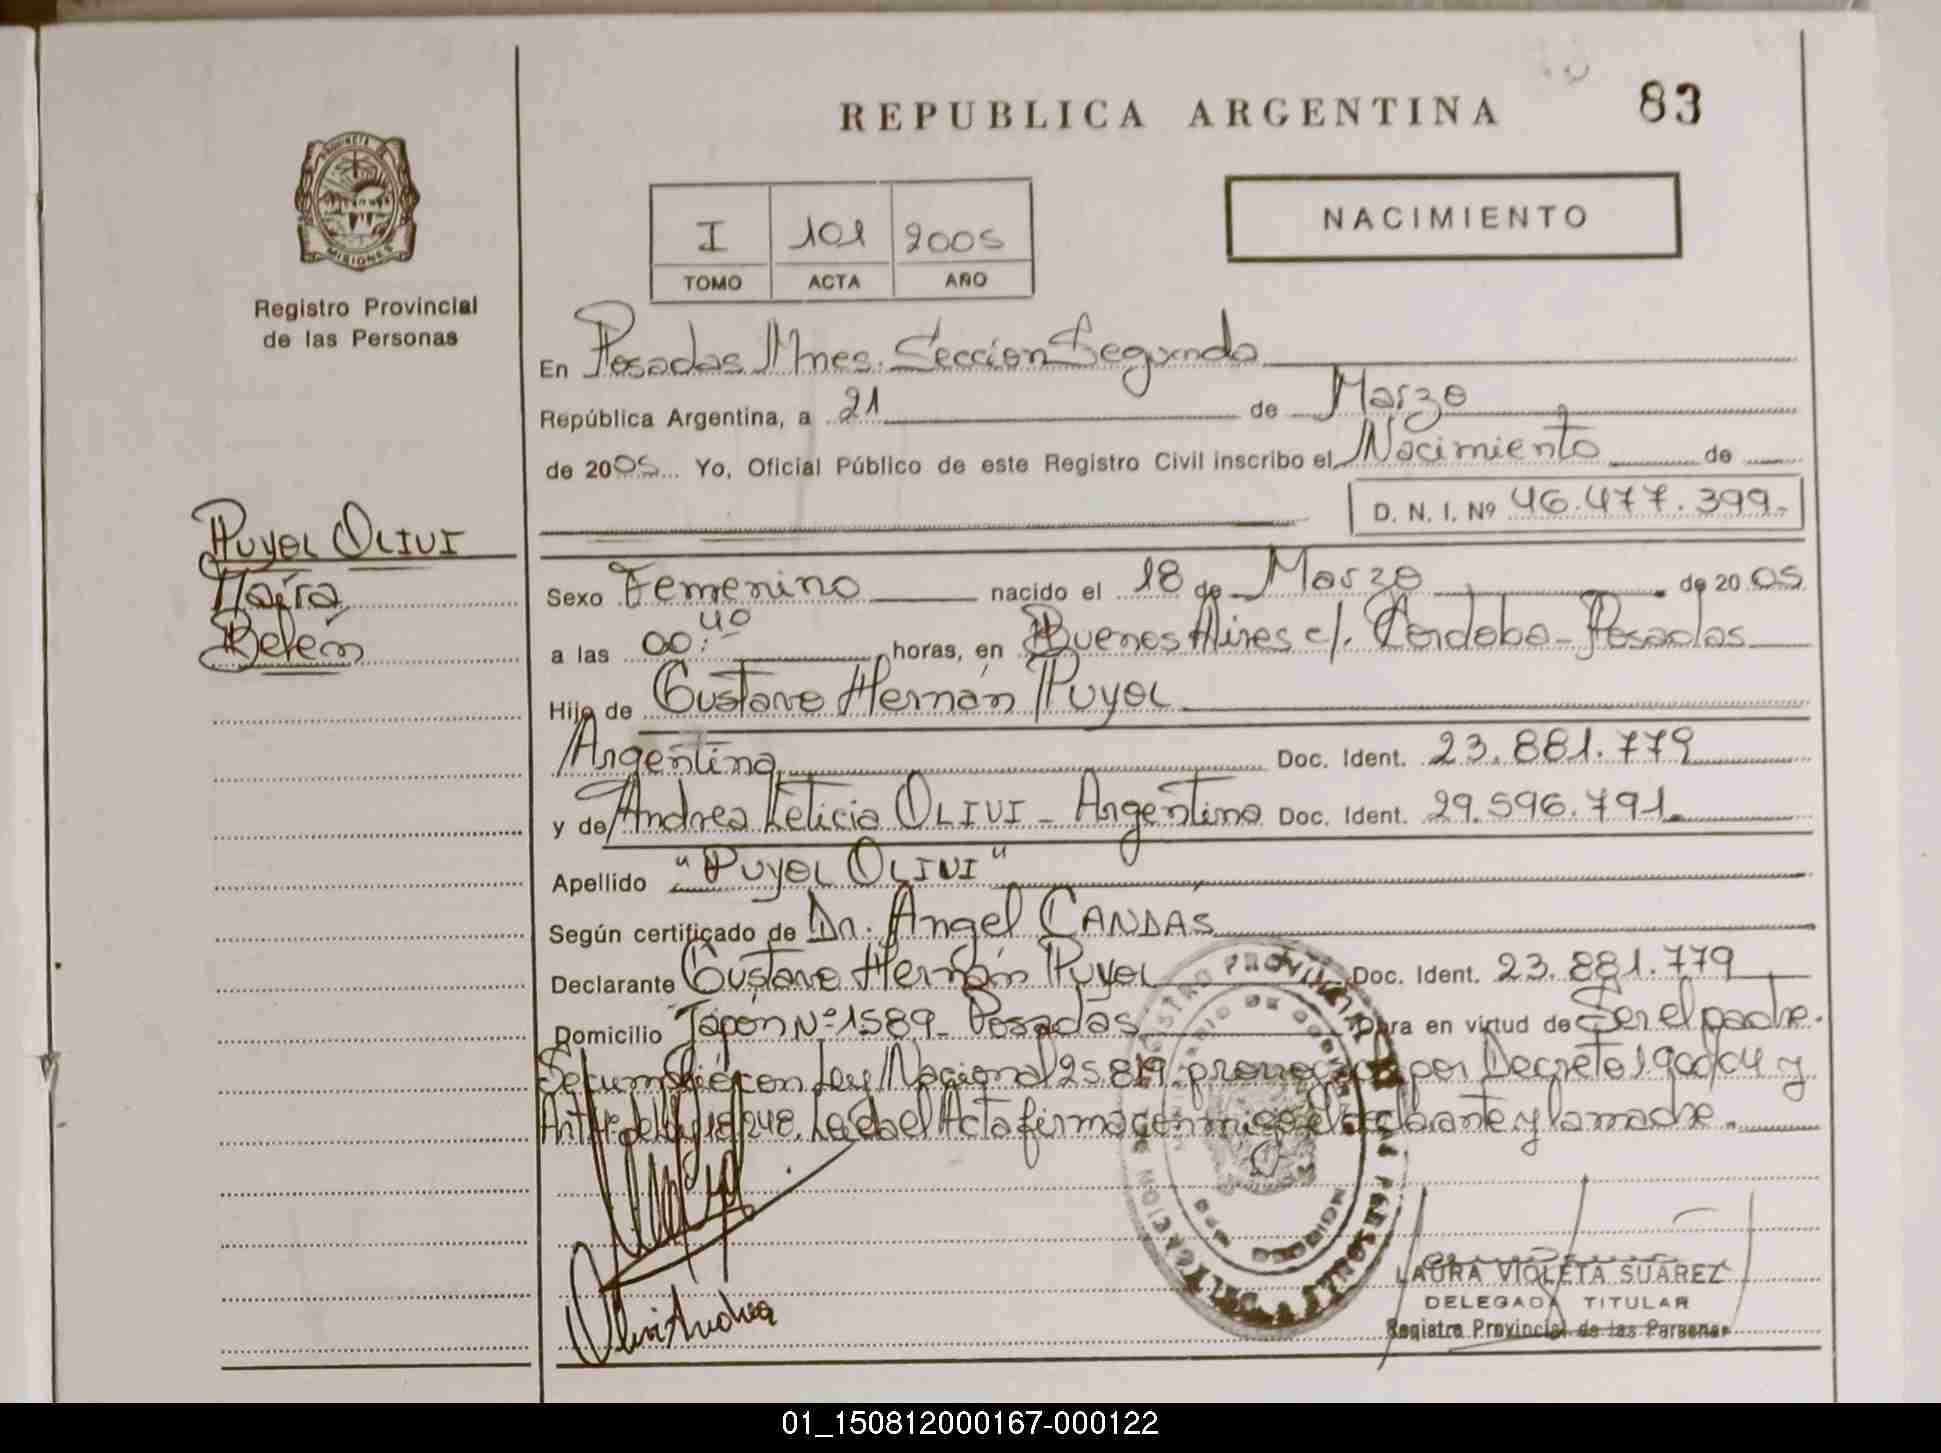 REPUBLICA ARGENTINA
83
PROVINCIA DE
MISIONES
Registro Provincial
de las Personas
I 101 2005
TOMO ACTA AÑO
NACIMIENTO
En Posadas Mnes. Sección Segunda
República Argentina, a 21 de Marzo
de 2005 Yo, Oficial Público de este Registro Civil inscribo el Nacimiento de
D. N. I. Nº 46.477.399.-
PUYOL OLIVI
Maíra
Belén
Sexo Femenino nacido el 18 de Marzo de 2005
a las 00:40 horas, en Buenos Aires c/. Córdoba - Posadas
Hijo de Gustavo Hernán PUYOL
Argentina Doc. Ident. 23.881.779
y de Andrea Leticia OLIVI - Argentina Doc. Ident. 29.596.791.
Apellido "PUYOL OLIVI"
Según certificado de Dr. Angel CANDÁS
Declarante Gustavo Hernán Puyol Doc. Ident. 23.881.779
Domicilio Japón Nº 1589 - Posadas Obra en virtud de Ser el padre.
Se cumplió con Ley Nacional 25.819 por Decreto 190/04 y
Art de Ley 18.248. Leída el Acta firma conmigo el declarante y la madre.
Olivi Andrea
LAURA VIOLETA SUAREZ
DELEGADA TITULAR
Registro Provincial de las Personas
01_150812000167-000122